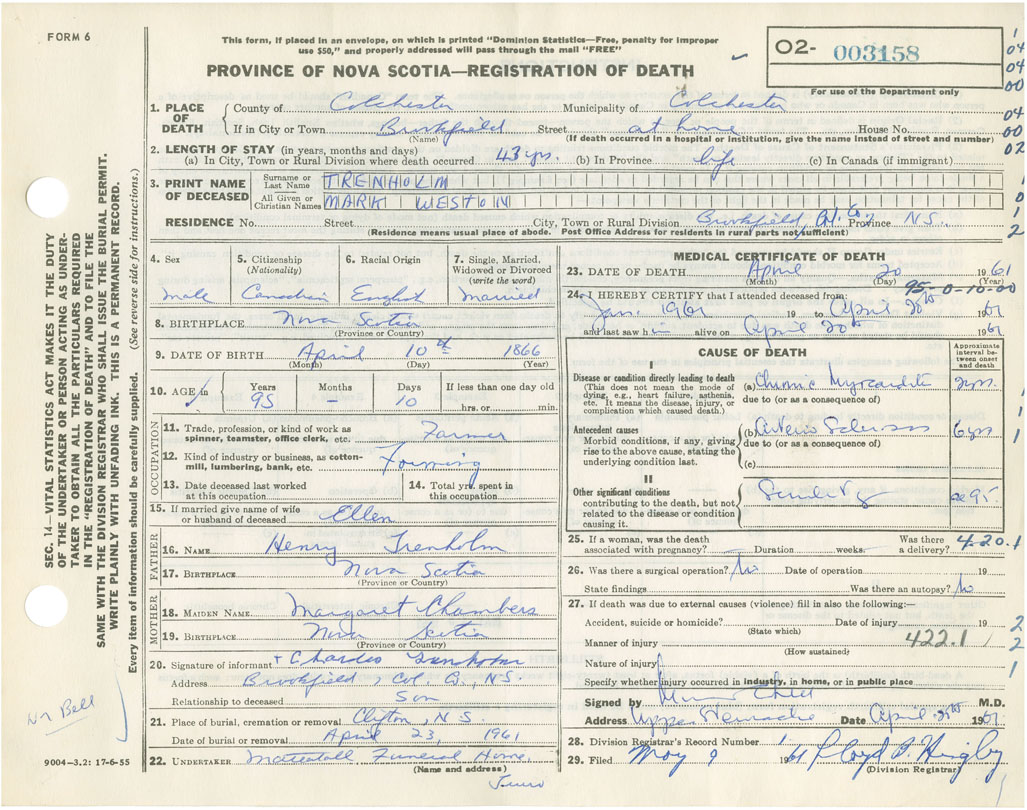 FORM 6
This form, if placed in an envelope, on which is printed "Dominion Statistics—Free, penalty for improper
use $50," and properly addressed will pass through the mail "FREE"
O2- 003158
For use of the Department only
PROVINCE OF NOVA SCOTIA—REGISTRATION OF DEATH
1
04
04
00
04
00
02
1
0
1
2
SEC. 14—VITAL STATISTICS ACT MAKES IT THE DUTY
OF THE UNDERTAKER OR PERSON ACTING AS UNDER-
TAKER TO OBTAIN ALL THE PARTICULARS REQUIRED
IN THE "REGISTRATION OF DEATH" AND TO FILE THE
SAME WITH THE DIVISION REGISTRAR WHO SHALL ISSUE THE BURIAL PERMIT.
WRITE PLAINLY WITH UNFADING INK. THIS IS A PERMANENT RECORD.
Every item of information should be carefully supplied. (See reverse side for instructions.)
1. PLACE OF DEATH County of Colchester Municipality of Colchester
If in City or Town Brookfield Street at home House No.
(Name) (If death occurred in a hospital or institution, give the name instead of street and number)
2. LENGTH OF STAY (in years, months and days)
(a) In City, Town or Rural Division where death occurred 43 yrs. (b) In Province life (c) In Canada (if immigrant)
3. PRINT NAME OF DECEASED Surname or Last Name TRENHOLM
All Given or Christian Names MARK WESTON
RESIDENCE No. Street City, Town or Rural Division Brookfield, Col. Co., Province N.S.
(Residence means usual place of abode. Post Office Address for residents in rural parts not sufficient)
4. Sex 5. Citizenship (Nationality) 6. Racial Origin 7. Single, Married, Widowed or Divorced (write the word)
Male Canadian English Married
8. BIRTHPLACE Nova Scotia
(Province or Country)
9. DATE OF BIRTH April 10th 1866
(Month) (Day) (Year)
10. AGE Years Months Days If less than one day old
95 - 10 hrs. or min.
OCCUPATION
11. Trade, profession, or kind of work as
spinner, teamster, office clerk, etc. Farmer
12. Kind of industry or business, as cotton-
mill, lumbering, bank, etc. Farming
13. Date deceased last worked
at this occupation
14. Total yrs. spent in
this occupation
15. If married give name of wife
or husband of deceased Ellen
FATHER
16. NAME Henry Trenholm
17. BIRTHPLACE Nova Scotia
(Province or Country)
MOTHER
18. MAIDEN NAME Margaret Chambers
19. BIRTHPLACE Nova Scotia
(Province or Country)
20. Signature of informant + Charles Trenholm
Address Brookfield, Col. Co., N.S.
Relationship to deceased Son
21. Place of burial, cremation or removal Clifton, N.S.
Date of burial or removal April 23, 1961
22. UNDERTAKER Mattatall Funeral Home
(Name and address)
Truro
9004—3.2: 17-6-55
Bell
MEDICAL CERTIFICATE OF DEATH
23. DATE OF DEATH April 20 1961
(Month) (Day) (Year)
95-0-10-00
24. I HEREBY CERTIFY that I attended deceased from:
Jan. 1961 19 to April 20th 1961
and last saw him alive on April 20th 1961
CAUSE OF DEATH
Approximate interval between onset and death
I
Disease or condition directly leading to death
(This does not mean the mode of
dying, e.g., heart failure, asthenia,
etc. It means the disease, injury, or
complication which caused death.)
(a) Chronic Myocarditis
due to (or as a consequence of)
Antecedent causes
Morbid conditions, if any, giving
rise to the above cause, stating the
underlying condition last.
(b) Arterio Sclerosis 6 yrs
due to (or as a consequence of)
(c)
II
Other significant conditions
contributing to the death, but not
related to the disease or condition
causing it.
Senility 95.
25. If a woman, was the death
associated with pregnancy? Duration weeks. Was there
a delivery? 4-20.1
26. Was there a surgical operation? No Date of operation 19
State findings Was there an autopsy? No
27. If death was due to external causes (violence) fill in also the following:—
Accident, suicide or homicide? Date of injury 19
(State which)
Manner of injury 422.1
(How sustained)
Nature of injury
Specify whether injury occurred in industry, in home, or in public place
Signed by M.D.
Address Upper Stewiacke Date April 25th 1961
28. Division Registrar's Record Number 1
29. Filed May 9 1961 Lloyd B.
(Division Registrar)